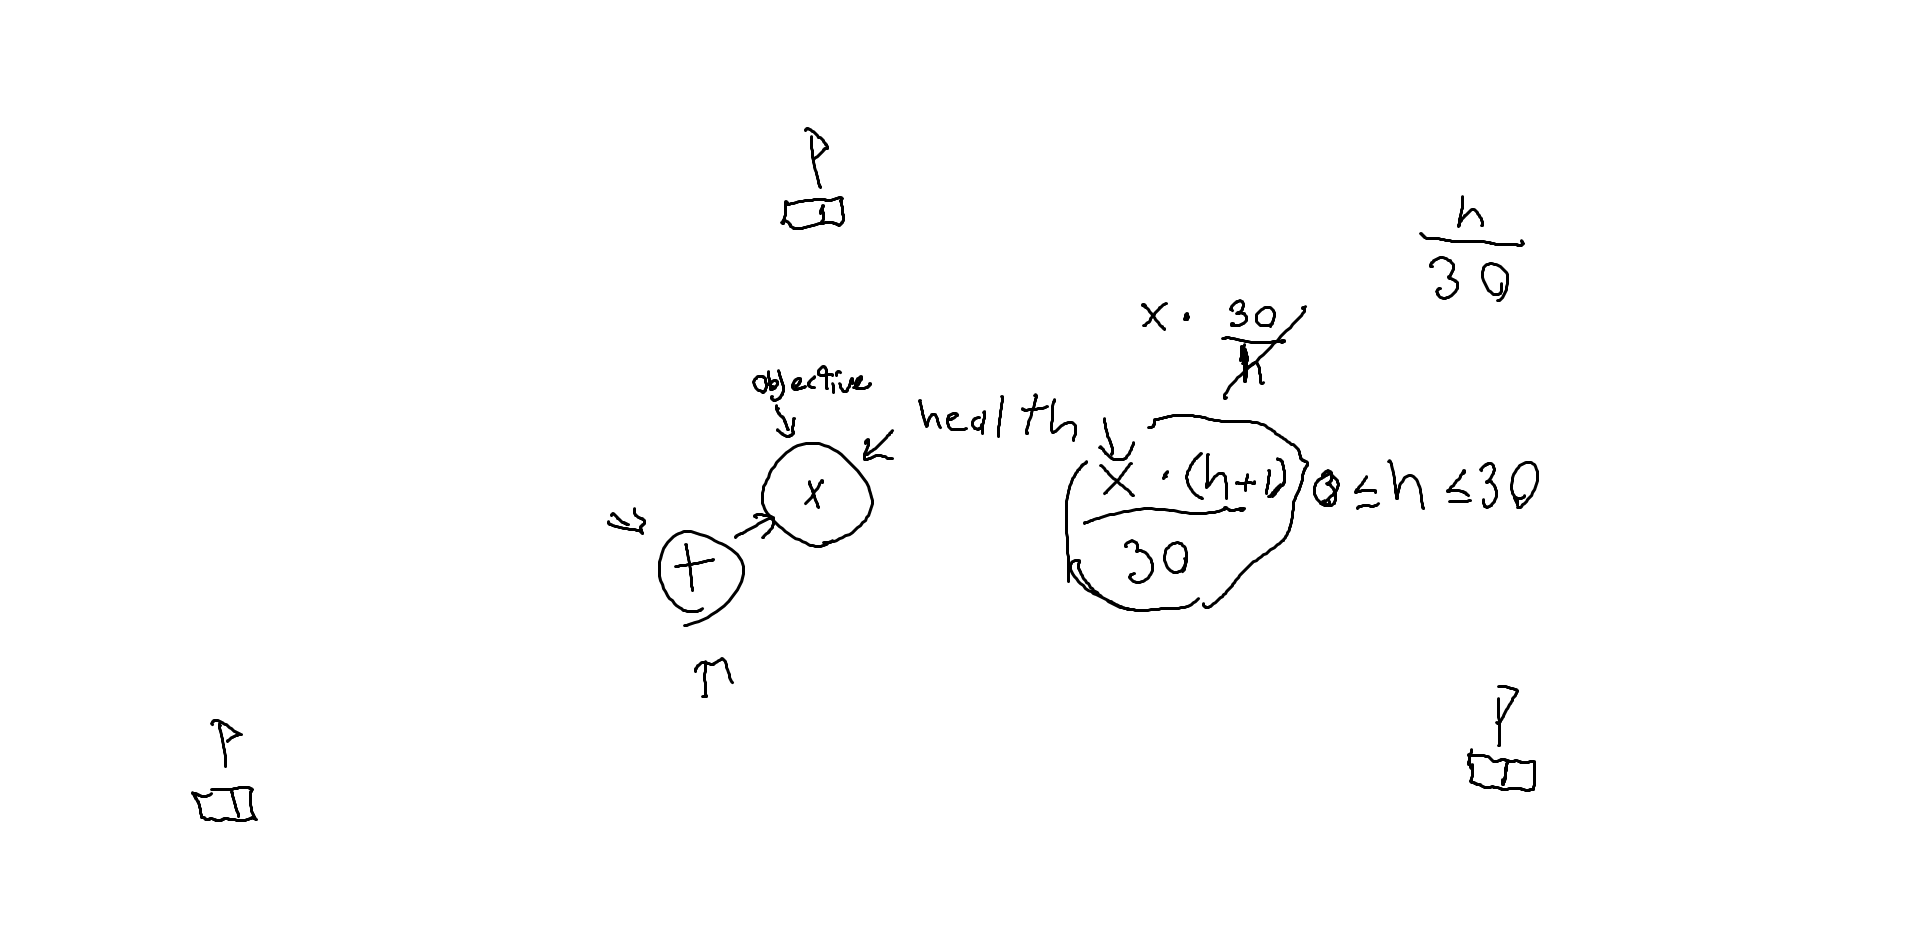 h
30
x · 30
h
objective
health
x
x · (h+1) 0 ≤ h ≤ 30
30
+